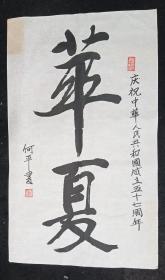 庆祝中华人民共和国成立五十七周年
華夏
何平書